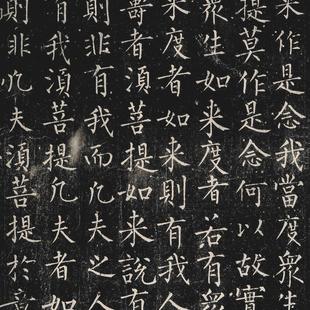 来作是念我當度衆生
提莫作是念何以故實
衆生如来度者若有衆
来度者如来則有我人
壽者須菩提如来說有
則非有我而凡夫之人
有我須菩提凡夫者如
則非凡夫須菩提於意